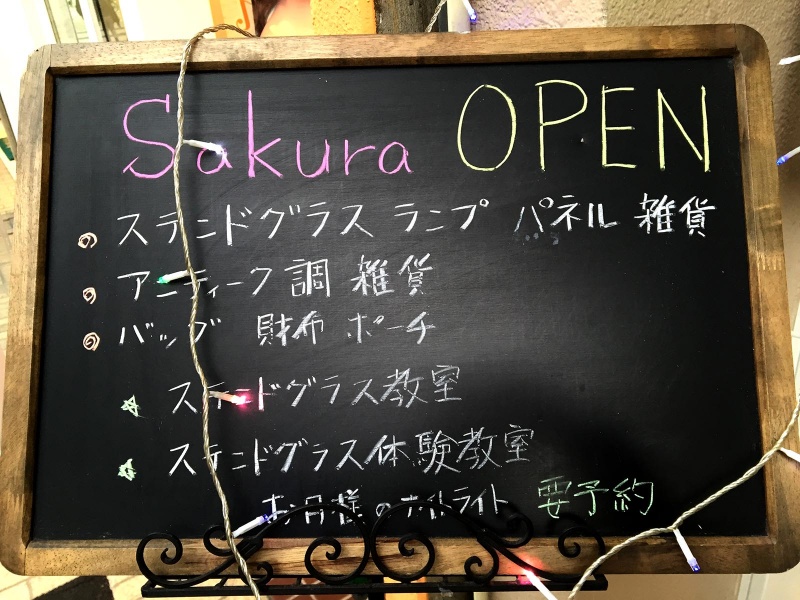 Sakura OPEN
◎ ステンドグラス ランプ パネル 雑貨
◎ アンティーク調 雑貨
◎ バッグ 財布 ポーチ
☆ ステンドグラス教室
☆ ステンドグラス体験教室
お月様のナイトライト 要予約